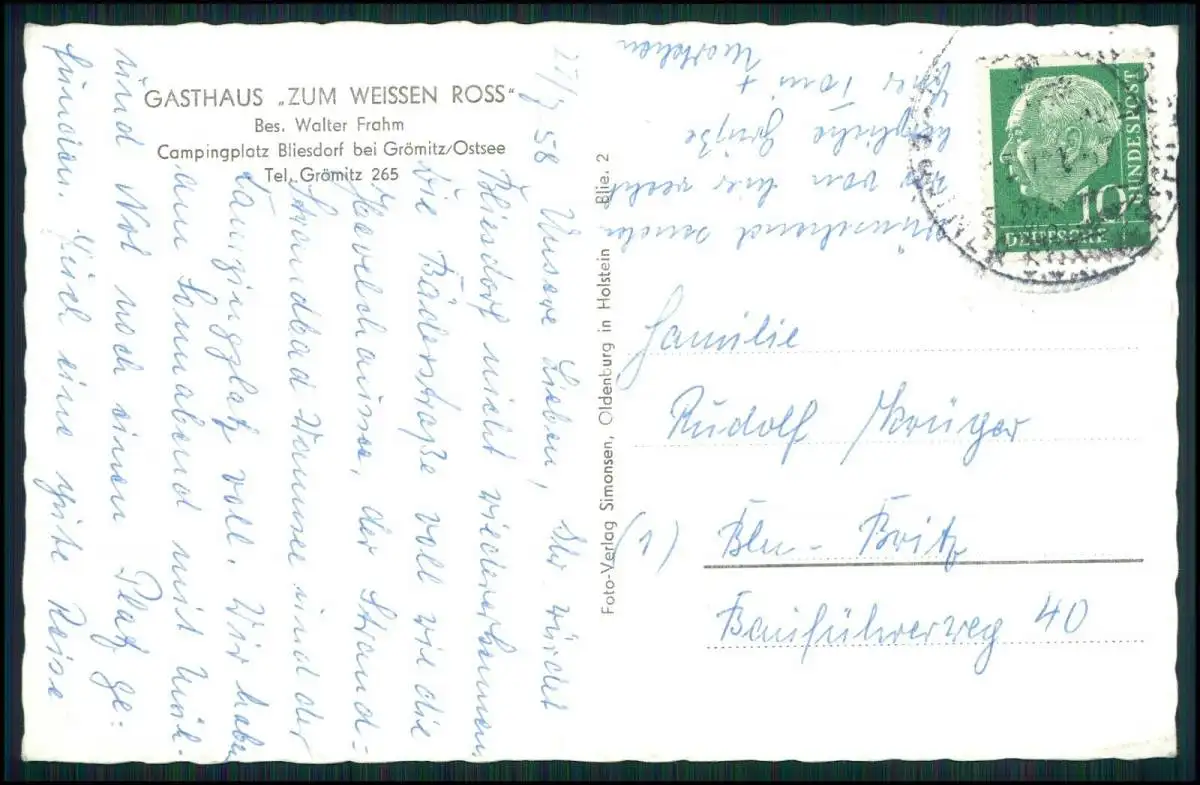 GASTHAUS „ZUM WEISSEN ROSS"
Bes. Walter Frahm
Campingplatz Bliesdorf bei Grömitz/Ostsee
Tel. Grömitz 265
27/7 58 Unsere Lieben, Ihr würdet
Bliesdorf nicht wiedererkennen
die Bäderstraße voll wie die
Havelchaussee, der Strand=
Strandbad Wannsee und der
Campingplatz voll. Wir haben
am Sonnabend mit Müh.
und Not noch einen Platz ge=
funden. Euch eine gute Reise
wünschend senden
wir von hier recht
herzliche Grüße
Eure Toni +
Foto-Verlag Simonsen, Oldenburg in Holstein Blie. 2
DEUTSCHE BUNDESPOST
10
Familie
Rudolf Krüger
(1) Bln - Britz
Bauführerweg 40